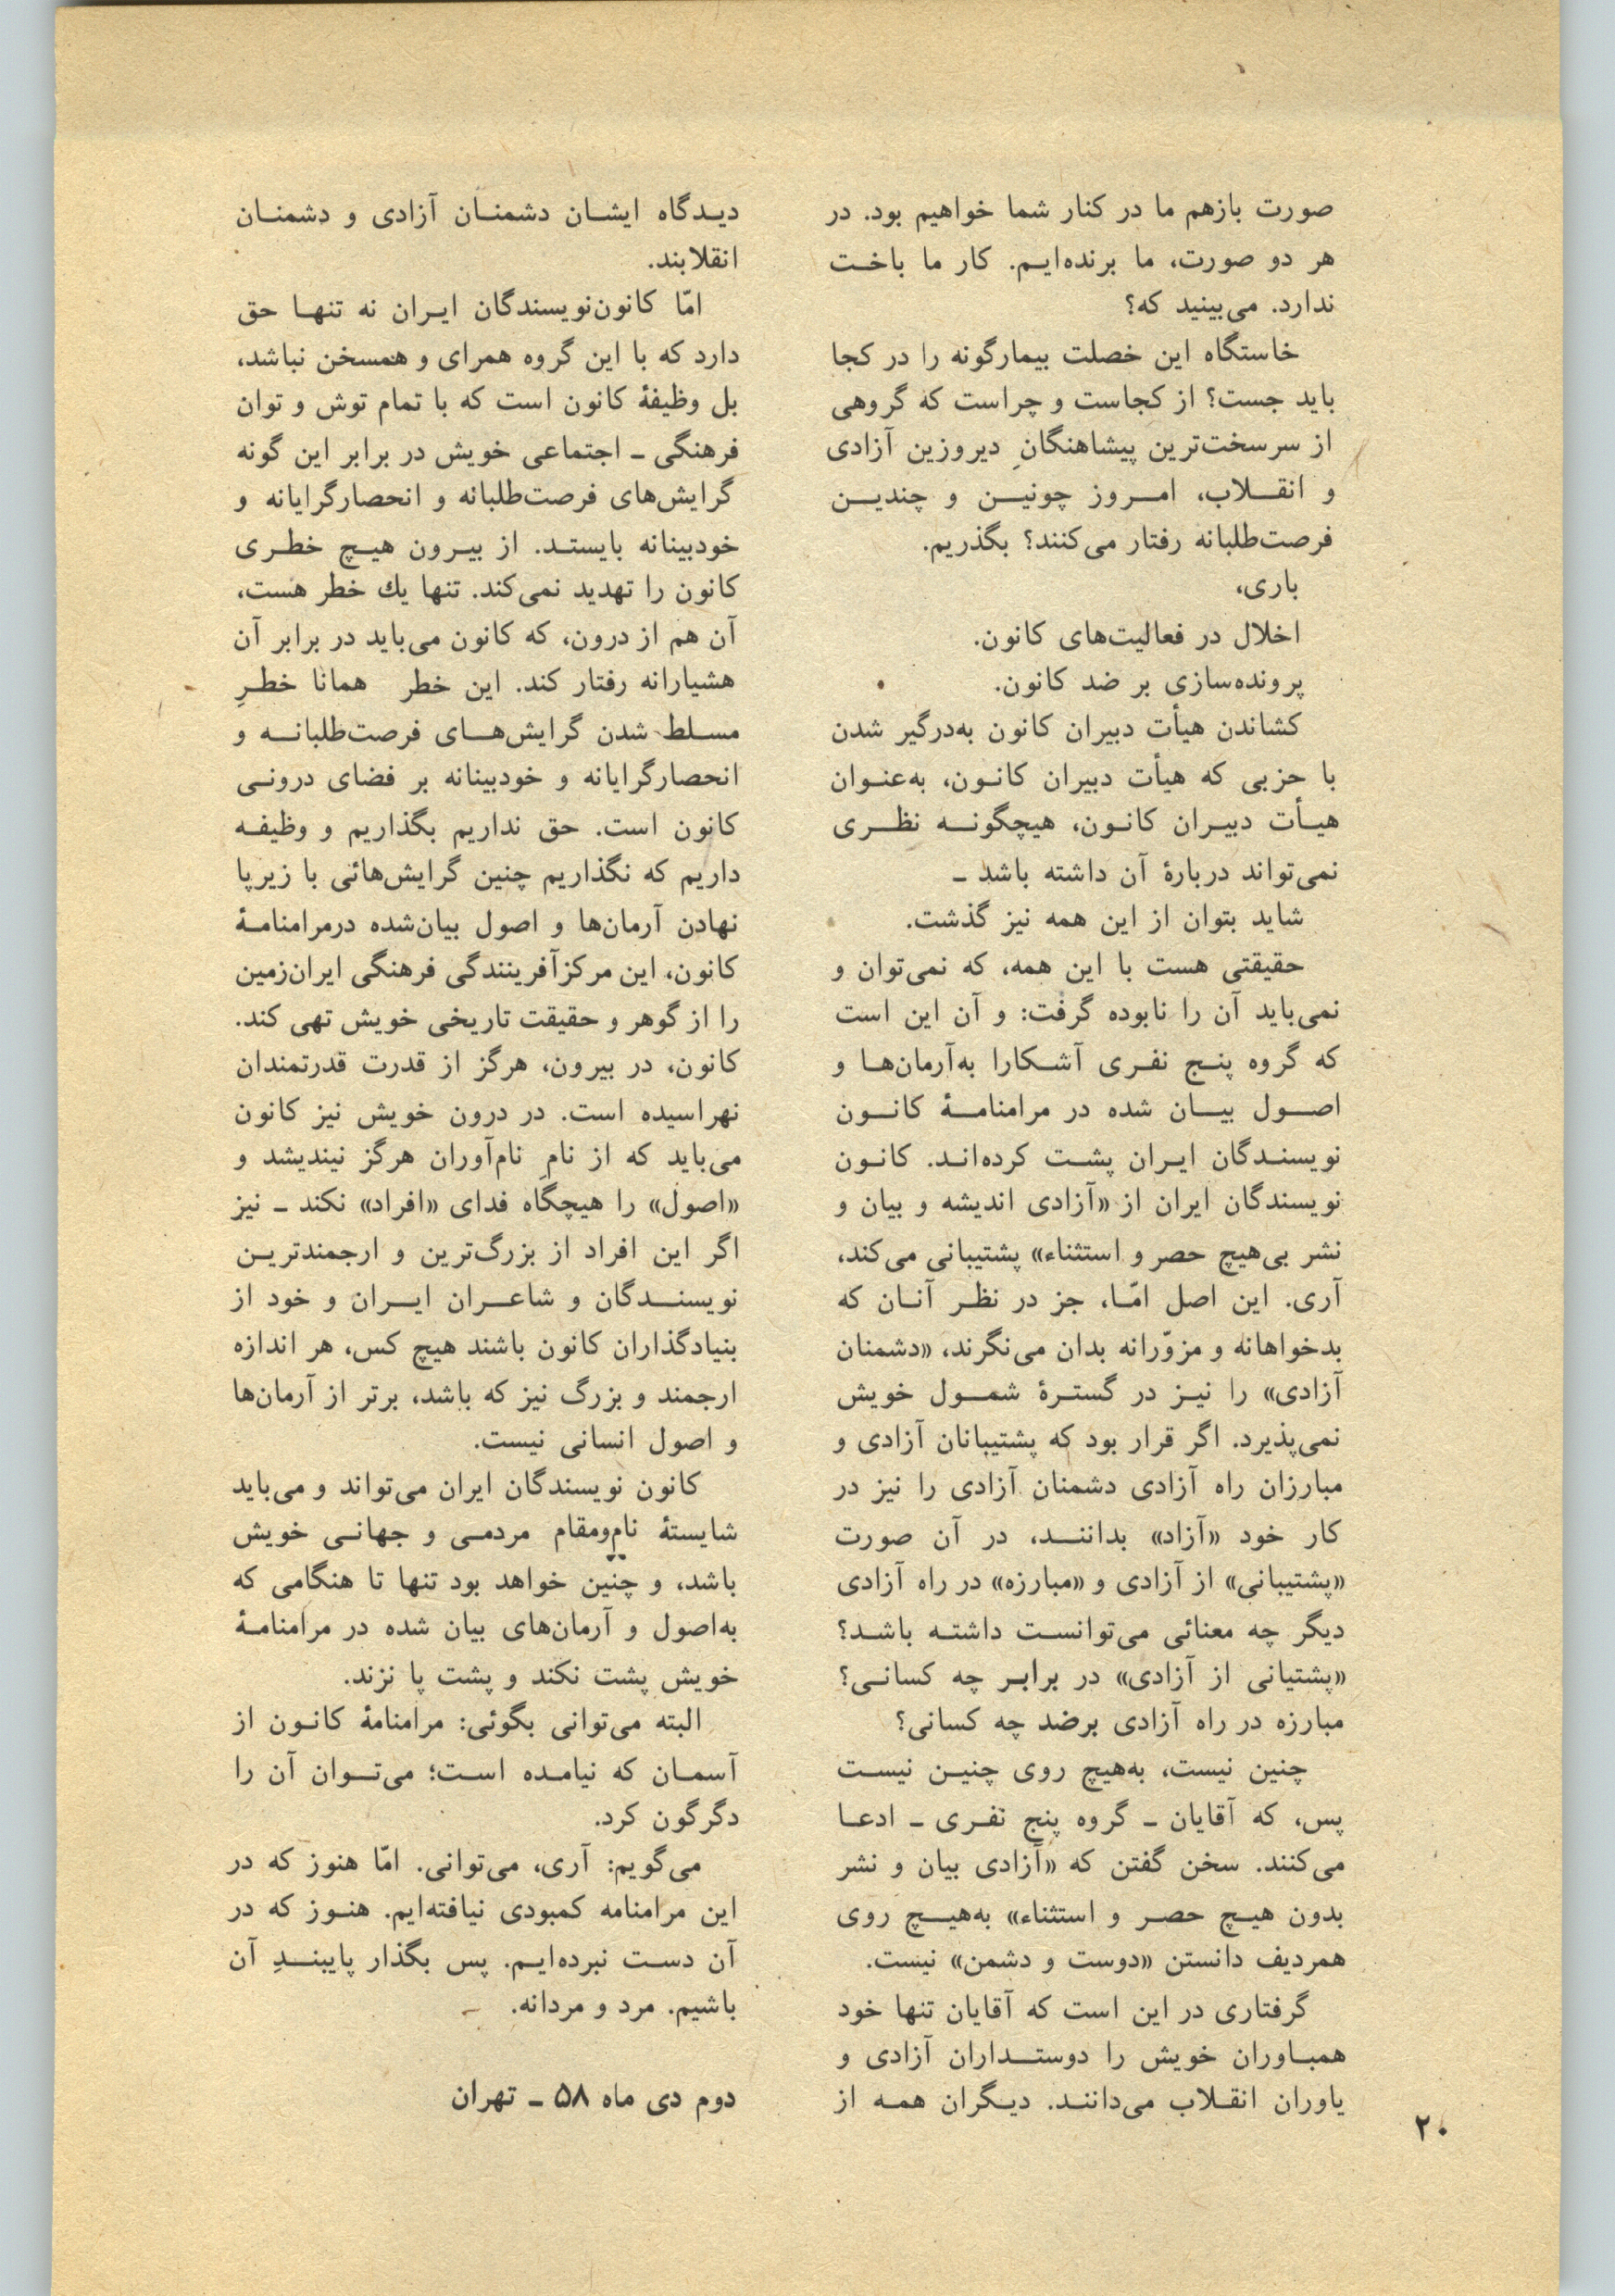 صورت بازهم ما در کنار شما خواهیم بود. در
هر دو صورت، ما برنده‌ایم. کار ما باخت
ندارد. می‌بینید که؟
خاستگاه این خصلت بیمارگونه را در کجا
باید جست؟ از کجاست و چراست که گروهی
از سرسخت‌ترین پیشاهنگانِ دیروزین آزادی
و انقلاب، امروز چونین و چندین
فرصت‌طلبانه رفتار می‌کنند؟ بگذریم.
باری،
اخلال در فعالیت‌های کانون.
پرونده‌سازی بر ضد کانون.
کشاندن هیأت دبیران کانون به‌درگیر شدن
با حزبی که هیأت دبیران کانون، به‌عنوان
هیأت دبیران کانون، هیچگونه نظری
نمی‌تواند دربارهٔ آن داشته باشد ـ
شاید بتوان از این همه نیز گذشت.
حقیقتی هست با این همه، که نمی‌توان و
نمی‌باید آن را نابوده گرفت: و آن این است
که گروه پنج نفری آشکارا به‌آرمان‌ها و
اصول بیان شده در مرامنامهٔ کانون
نویسندگان ایران پشت کرده‌اند. کانون
نویسندگان ایران از «آزادی اندیشه و بیان و
نشر بی‌هیچ حصر و استثناء» پشتیبانی می‌کند،
آری. این اصل امّا، جز در نظر آنان که
بدخواهانه و مزوّرانه بدان می‌نگرند، «دشمنان
آزادی» را نیز در گسترهٔ شمول خویش
نمی‌پذیرد. اگر قرار بود که پشتیبانان آزادی و
مبارزان راه آزادی دشمنان آزادی را نیز در
کار خود «آزاد» بدانند، در آن صورت
«پشتیبانی» از آزادی و «مبارزه» در راه آزادی
دیگر چه معنائی می‌توانست داشته باشد؟
«پشتیانی از آزادی» در برابر چه کسانی؟
مبارزه در راه آزادی برضد چه کسانی؟
چنین نیست، به‌هیچ روی چنین نیست
پس، که آقایان ـ گروه پنج نفری ـ ادعا
می‌کنند. سخن گفتن که «آزادی بیان و نشر
بدون هیچ حصر و استثناء» به‌هیچ روی
همردیف دانستن «دوست و دشمن» نیست.
گرفتاری در این است که آقایان تنها خود
همباوران خویش را دوستداران آزادی و
یاوران انقلاب می‌دانند. دیگران همه از
دیدگاه ایشان دشمنان آزادی و دشمنان
انقلابند.
امّا کانون‌نویسندگان ایران نه تنها حق
دارد که با این گروه همرای و همسخن نباشد،
بل وظیفهٔ کانون است که با تمام توش و توان
فرهنگی ـ اجتماعی خویش در برابر این گونه
گرایش‌های فرصت‌طلبانه و انحصارگرایانه و
خودبینانه بایستد. از بیرون هیچ خطری
کانون را تهدید نمی‌کند. تنها یك خطر هست،
آن هم از درون، که کانون می‌باید در برابر آن
هشیارانه رفتار کند. این خطر همانا خطرِ
مسلط شدن گرایش‌های فرصت‌طلبانه و
انحصارگرایانه و خودبینانه بر فضای درونی
کانون است. حق نداریم بگذاریم و وظیفه
داریم که نگذاریم چنین گرایش‌هائی با زیرپا
نهادن آرمان‌ها و اصول بیان‌شده درمرامنامهٔ
کانون، این مرکزآفرینندگی فرهنگی ایران‌زمین
را از گوهر و حقیقت تاریخی خویش تهی کند.
کانون، در بیرون، هرگز از قدرت قدرتمندان
نهراسیده است. در درون خویش نیز کانون
می‌باید که از نامِ نام‌آوران هرگز نیندیشد و
«اصول» را هیچگاه فدای «افراد» نکند ـ نیز
اگر این افراد از بزرگ‌ترین و ارجمندترین
نویسندگان و شاعران ایران و خود از
بنیادگذاران کانون باشند هیچ کس، هر اندازه
ارجمند و بزرگ نیز که باشد، برتر از آرمان‌ها
و اصول انسانی نیست.
کانون نویسندگان ایران می‌تواند و می‌باید
شایستهٔ نام‌ومقام مردمی و جهانی خویش
باشد، و چنین خواهد بود تنها تا هنگامی که
به‌اصول و آرمان‌های بیان شده در مرامنامهٔ
خویش پشت نکند و پشت پا نزند.
البته می‌توانی بگوئی: مرامنامهٔ کانون از
آسمان که نیامده است؛ می‌توان آن را
دگرگون کرد.
می‌گویم: آری، می‌توانی. امّا هنوز که در
این مرامنامه کمبودی نیافته‌ایم. هنوز که در
آن دست نبرده‌ایم. پس بگذار پایبندِ آن
باشیم. مرد و مردانه.
دوم دی ماه ۵۸ ـ تهران
۲۰